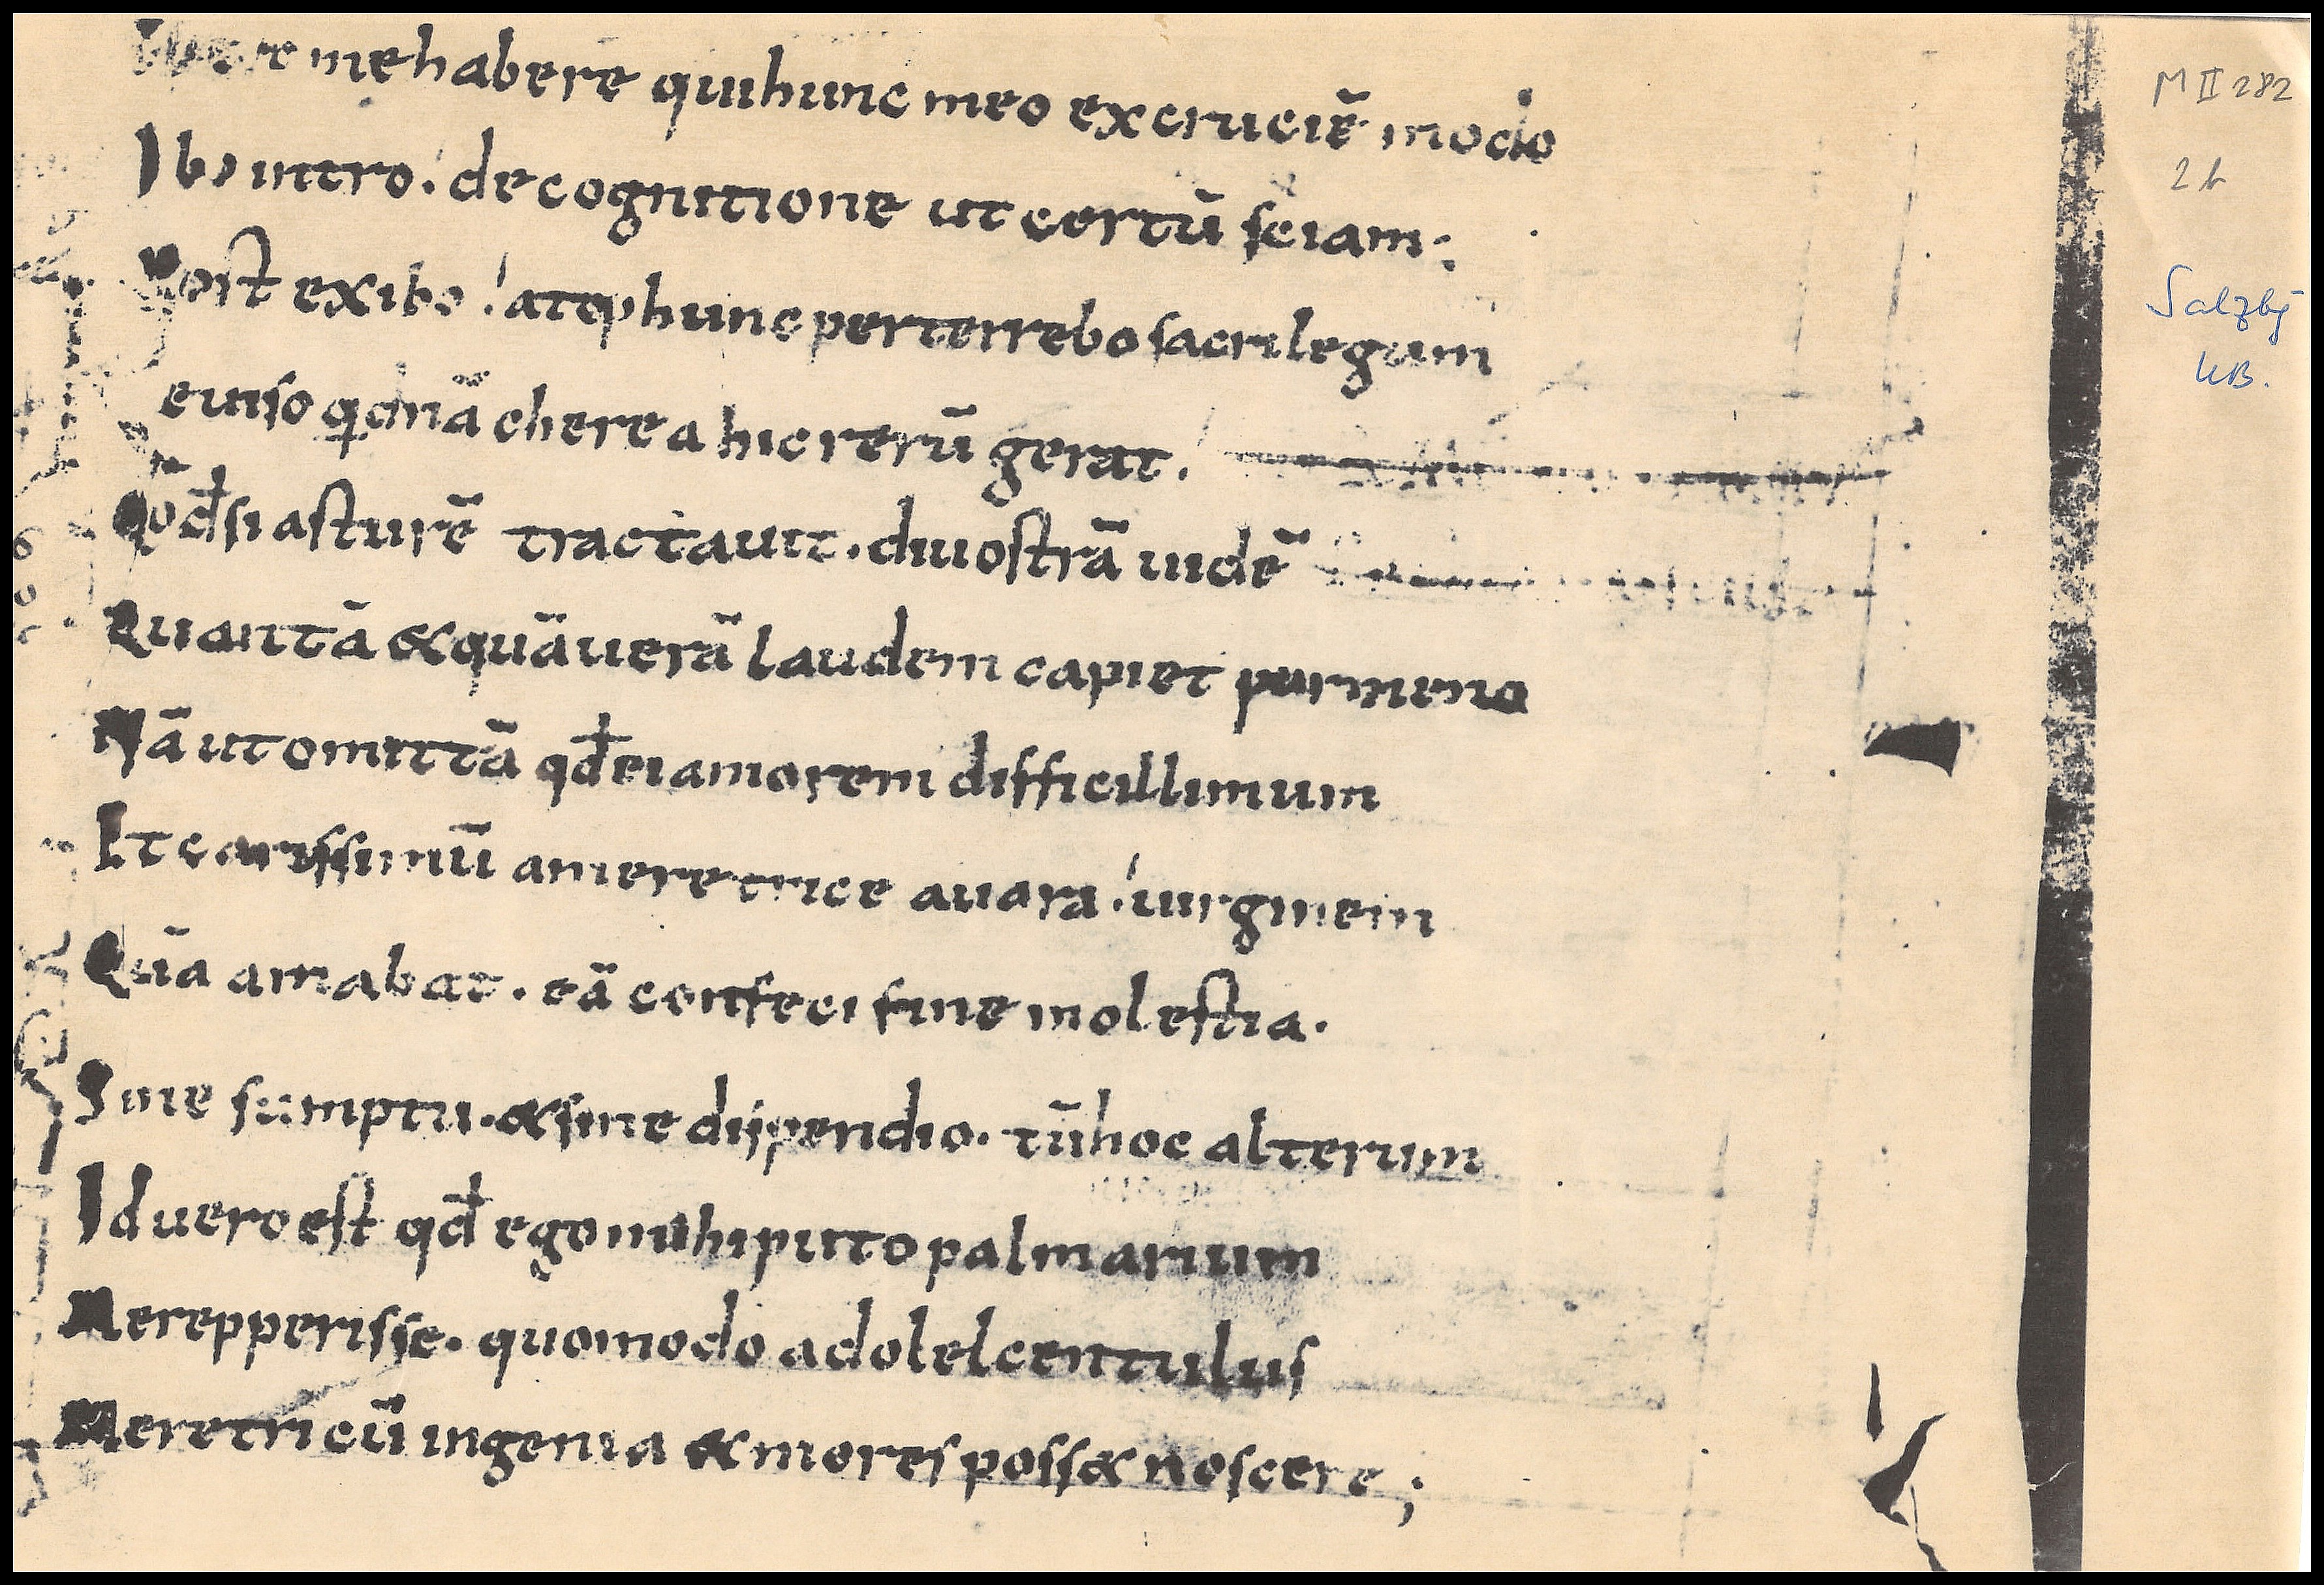 me habere quihunc meo excruciē modo
Ibo intro. decognitione ut certū sciam;
Post exibo atqᷤ hunc perterrebo sacrilegum
euiso qdnā cherea hic rerū gerat.
Qđ si asturē tractauit. divostrā uidē
Quantā &quā uerā laudem capiet parmeno
Nā ut omittā qđ ei amorem difficillimum
Et carissimū ameretrice auara uirginem
Quā amabat. eā confeci sine molestia.
Sine sumptu. &sine dispendio. tū hoc alterum
Id uero est qđ ego mihi puto palmarium
Merepperisse. quomodo adolelcentulus
Meretricū ingenia &mores poss& noscere;
M II 282
Salzbg
UB.